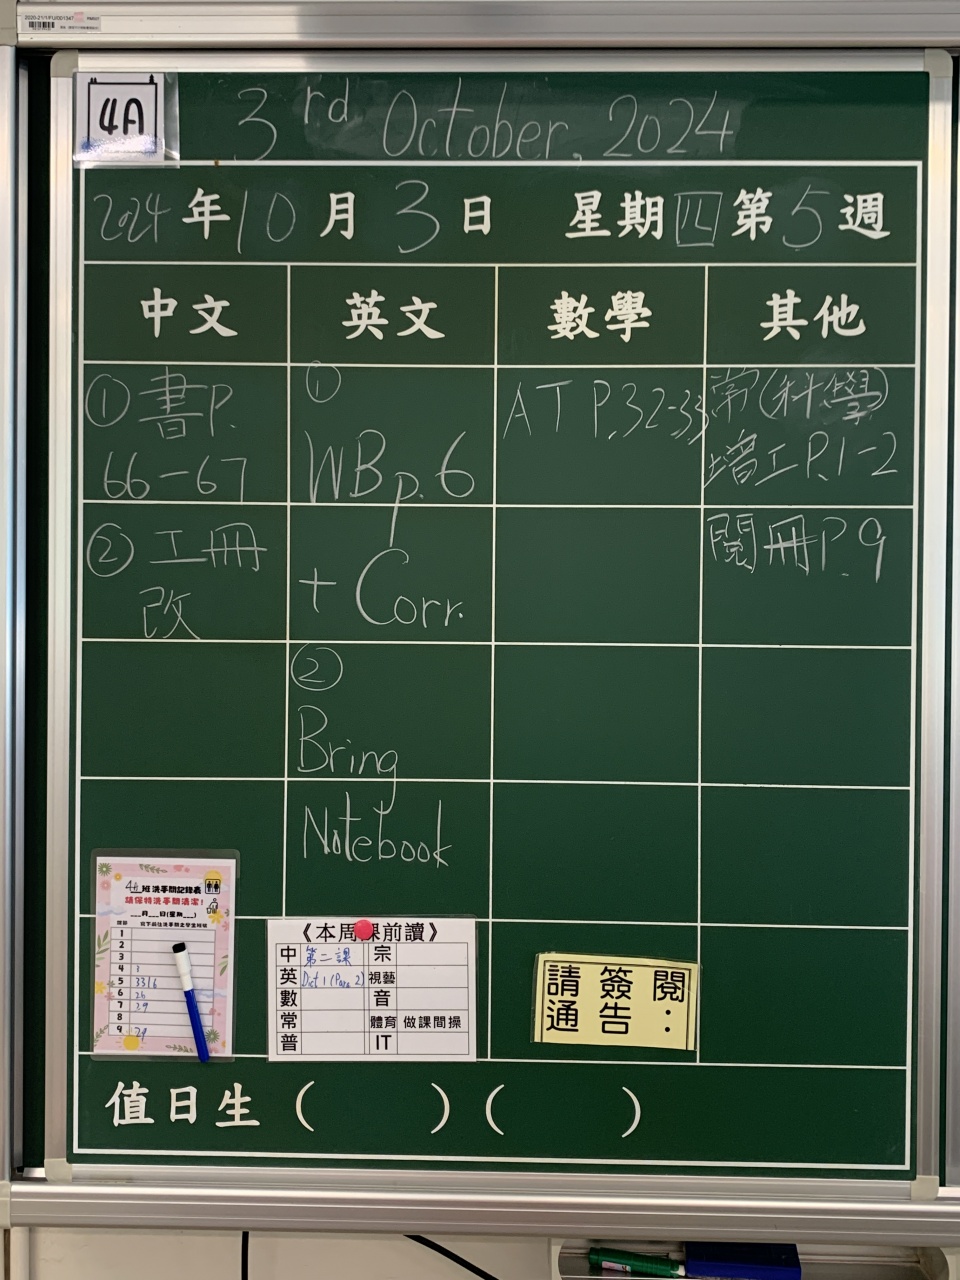 2020-21/1/FU/001347
4A
3rd October, 2024
2024年10月3日 星期四第5週
中文 英文 數學 其他
① 書P.
66-67
② 工冊
改
①
WB p.6
+ Corr.
②
Bring
Notebook
AT P.32-33
常(科學)
增工P.1-2
閱冊P.9
4A班洗手間記錄表
請保持洗手間清潔！
___月___日(星期___)
1
2
3
4
5 3316
6 26
7 29
8
9 29
《本周課前讀》
中 第二課 宗
英 Dict 1 (Para 2) 視藝
數 音
常 體育 做課間操
普 IT
請簽閱
通告：
值日生 ( ) ( )